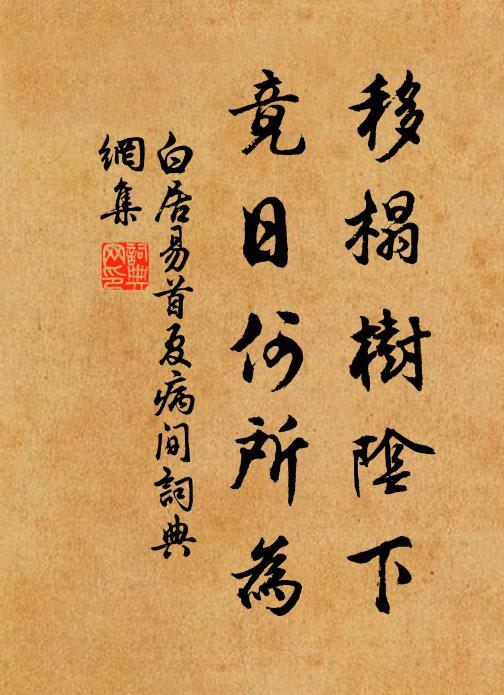 移榻樹陰下
竟日何所為
白居易首夏病間詞典
網集
詞典
网印